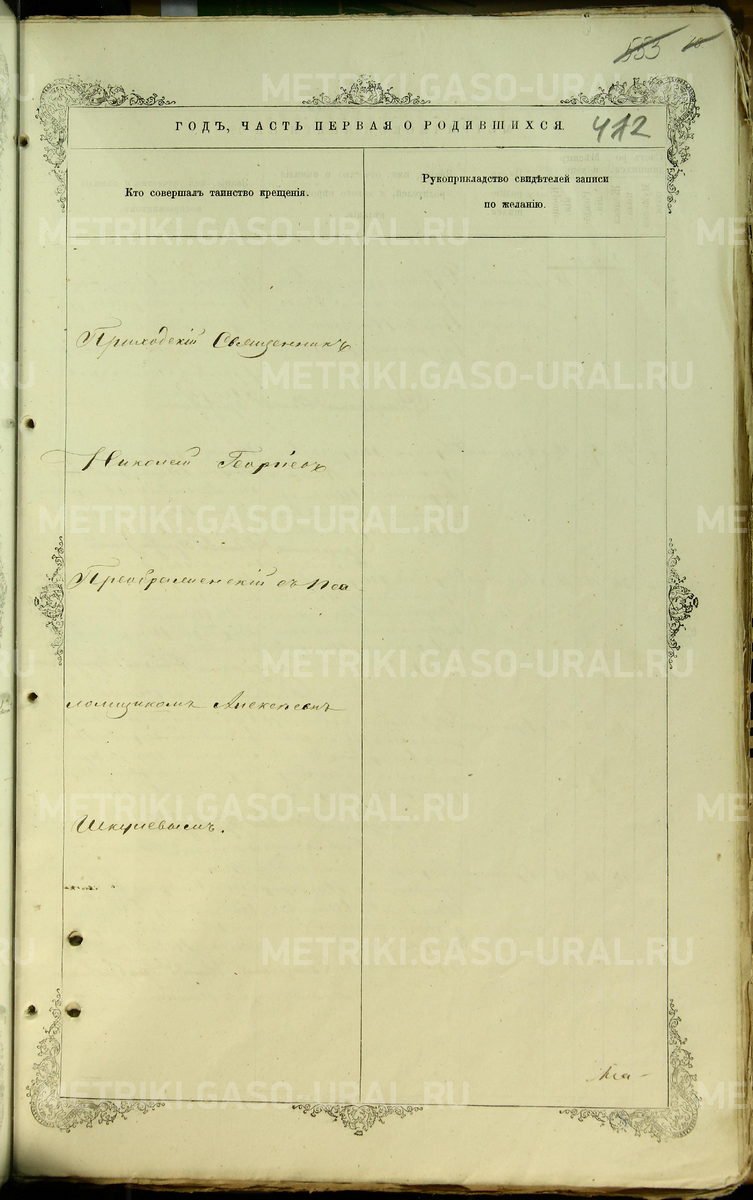 553
412
ГОДЪ, ЧАСТЬ ПЕРВАЯ О РОДИВШИХСЯ.
Кто совершалъ таинство крещенія.
Рукоприкладство свидѣтелей записи
по желанію.
Приходскій Священникъ
Николай Георгіевъ
Преображенскій съ Пса
ломщикомъ Алексѣемъ
METRIKI.GASO-URAL.RU